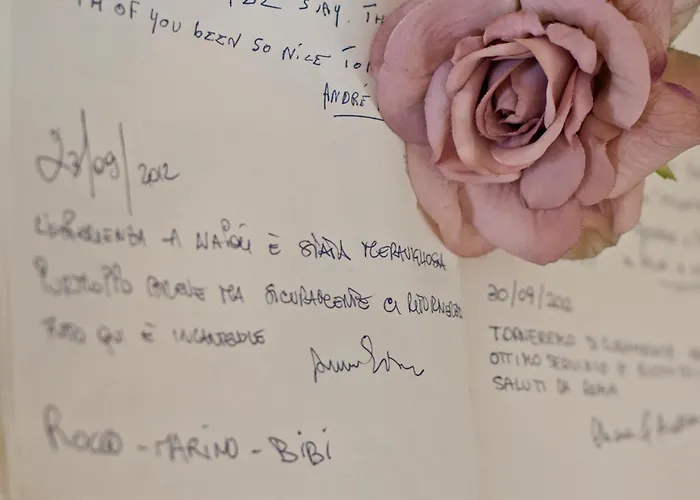 STAY. TH
OF YOU BEEN SO NICE TO
ANDRÉ
23/09/2012
L'ESPERIENZA A NAPOLI È STATA MERAVIGLIOSA
PURTROPPO BREVE MA SICURAMENTE CI RITORNEREMO
TUTTO QUI È INCANTEVOLE
ROCCO - MARINO - BIBI
30/09/201
TORNEREMO SICURAMENTE
OTTIMO SERVIZIO
SALUTI DA ROMA